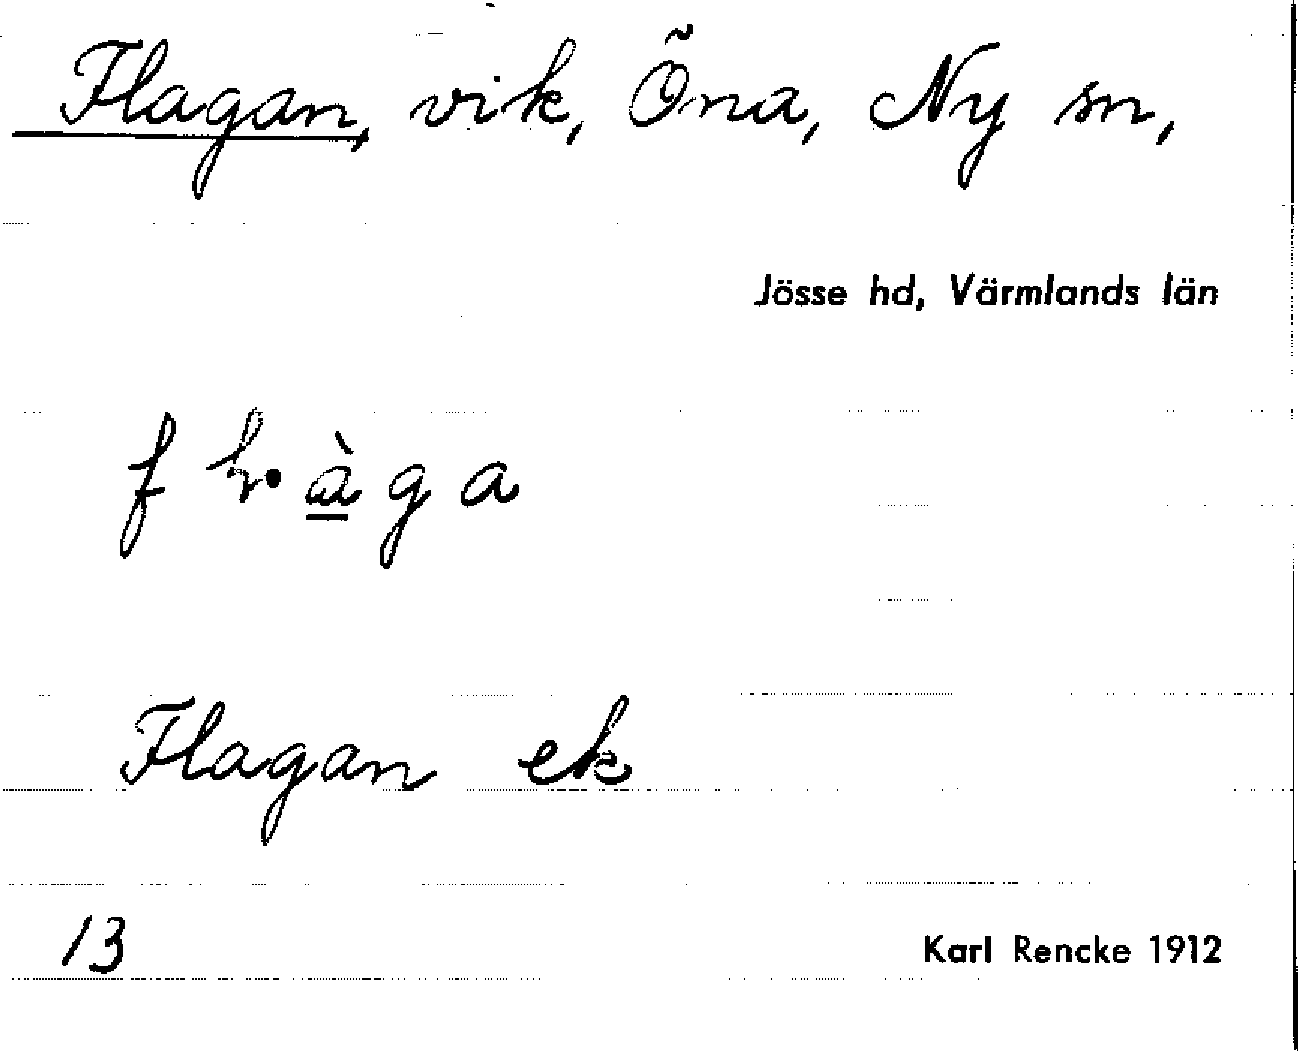 Flagan, vik, Öna, Ny sn,
Jösse hd, Värmlands län
Flagan ek
13
Karl Rencke 1912